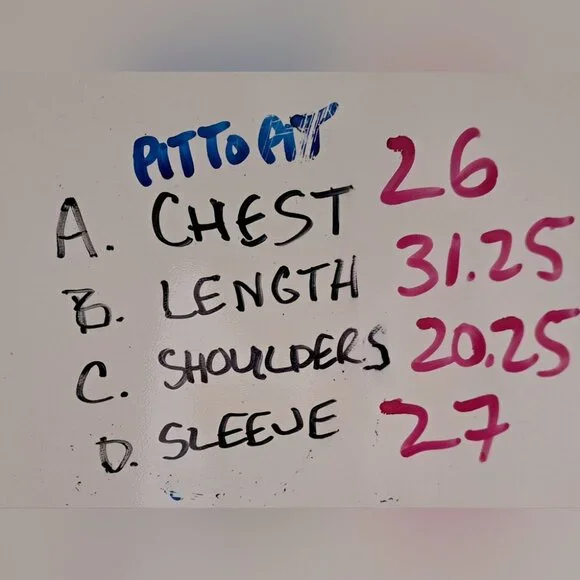 PIT TO PIT
A. CHEST 26
B. LENGTH 31.25
C. SHOULDERS 20.25
D. SLEEVE 27